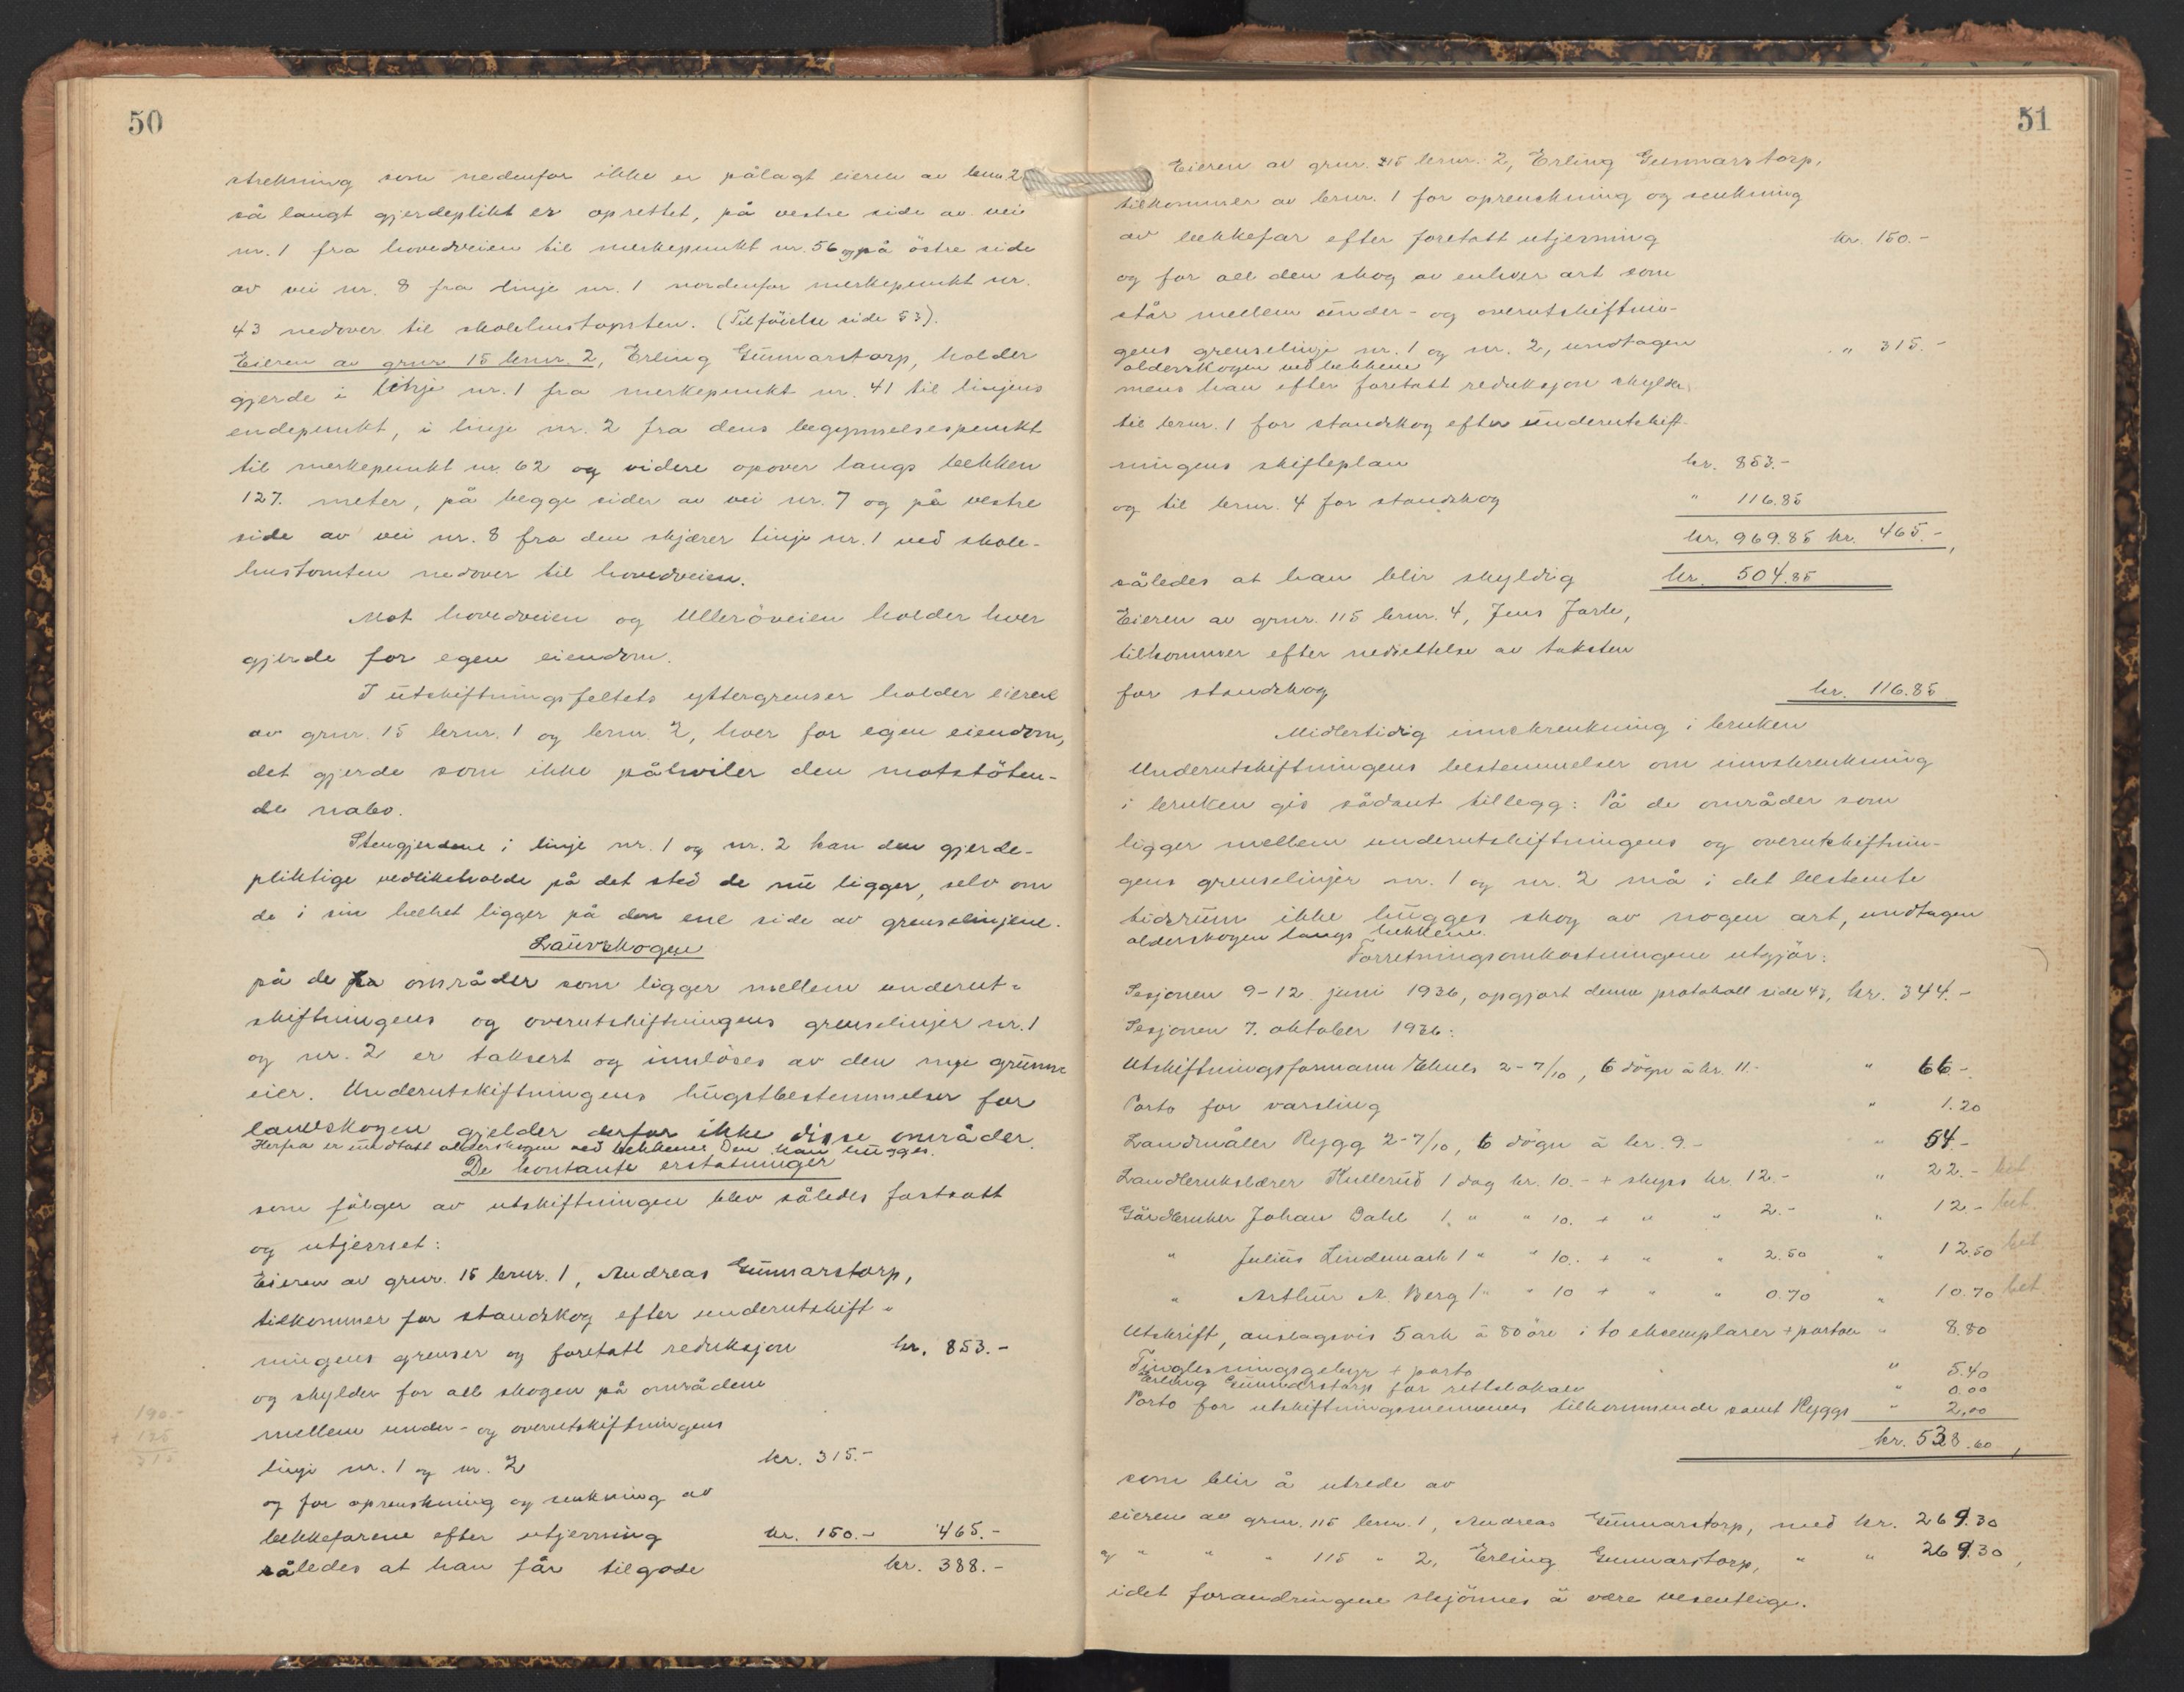 50
strekning som nedenfor ikke er pålagt eieren av brnr. 2
så langt gjerdeplikt er oprettet, på vestre side av vei
nr. 1 fra hovedveien til merkepunkt nr. 56 og på östre side
av vei nr. 8 fra linje nr. 1 nordenfor merkepunkt nr.
43 nedover til skolehustomten. (Tilföielse side 53).
Eieren av grnr. 15 brnr. 2, Erling Gunnarstorp, holder
gjerde i linje nr. 1 fra merkepunkt nr. 41 til linjens
endepunkt, i linje nr. 2 fra dens begynnelsespunkt
til merkepunkt nr. 62 og videre opover langs bekken
127. meter, på begge sider av vei nr. 7 og på vestre
side av vei nr. 8 fra den skjærer linje nr. 1 ved skole-
hustomten nedover til hovedveien.
Mot hovedveien og Ulleröveien holder hver
gjerde for egen eiendom.
I utskiftningsfeltets yttergrenser holder eieren
av grnr. 15 brnr. 1 og brnr. 2, hver for egen eiendom,
det gjerde som ikke påhviler den motstöten-
de nabo.
Stengjerdene i linje nr. 1 og nr. 2 kan den gjerde-
pliktige vedlikeholde på det sted de nu ligger, selv om
de i sin helhet ligger på den ene side av grenselinjene.
Lauvskogen
på de områder som ligger mellem underut-
skiftningens og overutskiftningens grenselinjer nr. 1
og nr. 2 er taksert og innlöses av den nye grunn-
eier. Underutskiftningens hugstbestemmelser for
lauvskogen gjelder derfor ikke disse områder.
Herfra er undtatt olderskogen ved bekkene. Den kan hugges.
De kontante erstatninger
som fölger av utskiftningen blev således fastsatt
og utjevnet:
Eieren av grnr. 15 brnr. 1, Andreas Gunnarstorp,
tilkommer for standskog efter underutskift-
ningens grenser og foretatt reduksjon kr. 853.-
og skylder for all skogen på områdene
mellem under- og overutskiftningens
linje nr. 1 og nr. 2 kr. 315.-
og for oprenskning og senkning av
bekkefarene efter utjevning kr. 150.- 465.-
således at han får tilgode kr. 388.-
190.-
+ 125
315
51
Eieren av grnr. 115 brnr. 2, Erling Gunnarstorp,
tilkommer av brnr. 1 for oprenskning og senkning
av bekkefar efter foretatt utjevning kr. 150.-
og for all den skog av enhver art som
står mellem under- og overutskiftnin-
gens grenselinje nr. 1 og nr. 2, undtagen " 315.-
olderskogen ved bekkene
mens han efter foretatt reduksjon skylder
til brnr. 1 for standskog efter underutskift-
ningens skifteplan kr. 853.-
og til brnr. 4 for standskog " 116.85
kr. 969.85 kr. 465.-,
således at han blir skyldig kr. 504.85
Eieren av grnr. 115 brnr. 4, Jens Jarle,
tilkommer efter nedsettelse av taksten
for standskog kr. 116.85
Midlertidig innskrenkning i bruken
Underutskiftningens bestemmelser om innskrenkning
i bruken gis sådant tillegg: På de områder som
ligger mellem underutskiftningens og overutskiftnin-
gens grenselinjer nr. 1 og nr. 2 må i det bestemte
tidsrum ikke hugges skog av nogen art, undtagen
olderskogen langs bekkene.
Forretningsomkostningene utgjör:
Sesjonen 9-12. juni 1936, opgjort denne protokoll side 43, kr. 344.-
Sesjonen 7. oktober 1936:
Utskiftningsformann 2-7/10, 6 dögn à kr. 11.- " 66.-
Porto for varsling " 1.20
Landmåler Rygg 2-7/10, 6 dögn à kr. 9.- " 54.-
Landbrukslærer Kullerud 1 dag kr. 10.- + skyss kr. 12.- " 22.- bet.
Gårdbruker Johan Dahl 1 " " 10. + " " 2.- " 12.- bet.
" Julius Lindemark 1 " " 10. + " " 2.50 " 12.50 bet
" Arthur A. Berg 1 " " 10 + " " 0.70 " 10.70 bet.
Utskrift, anslagsvis 5 ark à 80 öre i to eksemplarer + portoer " 8.80
Tinglesningsgebyr + porto " 5.40
Erling Gunnarstorp for rettslokaler " 0.00
Porto for utskiftningsmennenes tilkommende samt Ryggs " 2.00
kr. 538.60,
som blir å utrede av
eieren av grnr. 115 brnr. 1, Andreas Gunnarstorp, med kr. 269.30
og " " " 115 " 2, Erling Gunnarstorp, " " 269.30,
idet forandringene skjönnes å være vesentlige.